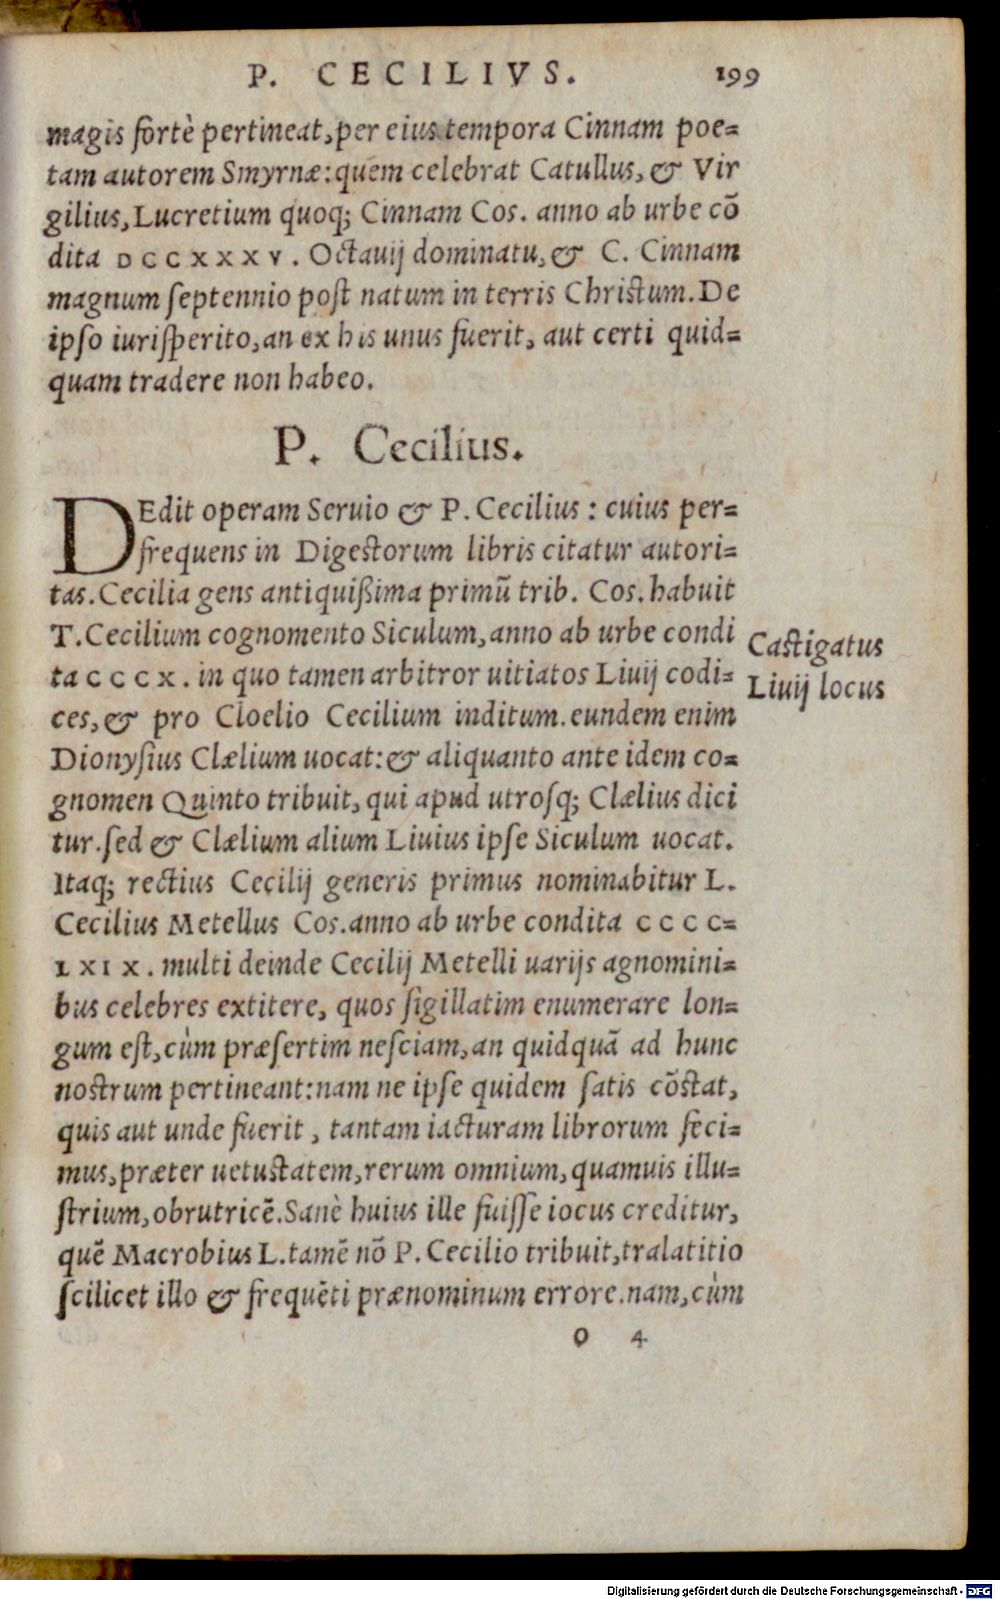 P. CECILIVS. 199
magis fortè pertineat, per eius tempora Cinnam poe=
tam autorem Smyrnæ: quem celebrat Catullus, & Vir
gilius, Lucretium quoq; Cinnam Cos. anno ab urbe cō
dita DCCXXXV. Octauij dominatu, & C. Cinnam
magnum septennio post natum in terris Christum. De
ipso iurisperito, an ex his unus fuerit, aut certi quid=
quam tradere non habeo.
P. Cecilius.
DEdit operam Seruio & P. Cecilius: cuius per=
frequens in Digestorum libris citatur autori=
tas. Cecilia gens antiquißima primū trib. Cos. habuit
T. Cecilium cognomento Siculum, anno ab urbe condi
ta CCCX. in quo tamen arbitror uitiatos Liuij codi=
ces, & pro Cloelio Cecilium inditum. eundem enim
Castigatus
Liuij locus
Dionysius Clælium uocat: & aliquanto ante idem co=
gnomen Quinto tribuit, qui apud utrosq; Clælius dici
tur. sed & Clælium alium Liuius ipse Siculum uocat.
Itaq; rectius Cecilij generis primus nominabitur L.
Cecilius Metellus Cos. anno ab urbe condita CCCC=
LXIX. multi deinde Cecilij Metelli uarijs agnomini=
bus celebres extitere, quos sigillatim enumerare lon=
gum est, cùm præsertim nesciam, an quidquā ad hunc
nostrum pertineant: nam ne ipse quidem satis cōstat,
quis aut unde fuerit, tantam iacturam librorum feci=
mus, præter uetustatem, rerum omnium, quamuis illu=
strium, obrutricē. Sanè huius ille fuisse iocus creditur,
quē Macrobius L. tamē nō P. Cecilio tribuit, tralatitio
scilicet illo & frequēti prænominum errore. nam, cùm
O 4
Digitalisierung gefördert durch die Deutsche Forschungsgemeinschaft - DFG